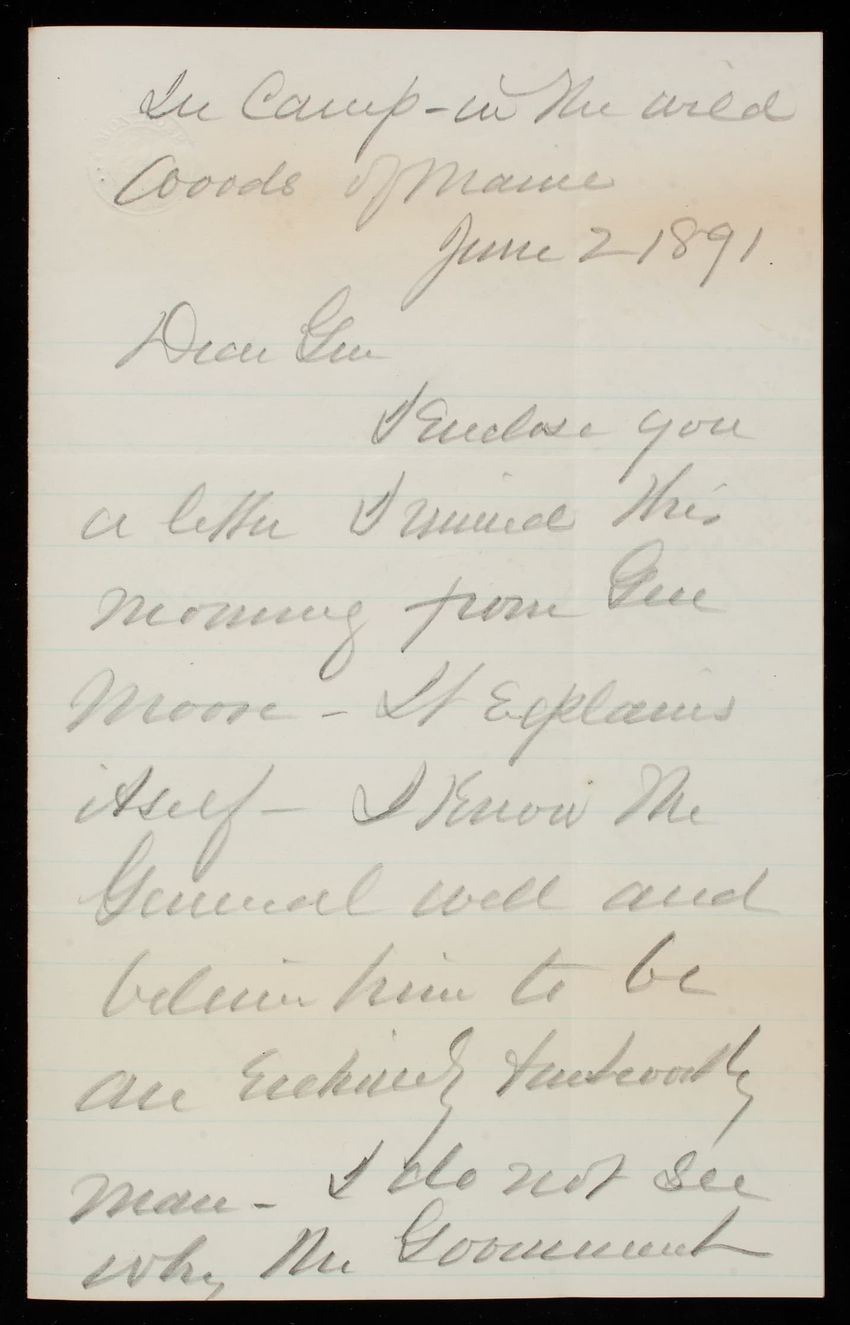 In Camp - in the wild
Woods of Maine
June 2 1891
Dear Gen
I Enclose you
a letter I received this
morning from Gen
Moore - It Explains
itself - I Know the
General well and
believe him to be
an Entirely trustworthy
man - I do not see
why the Government